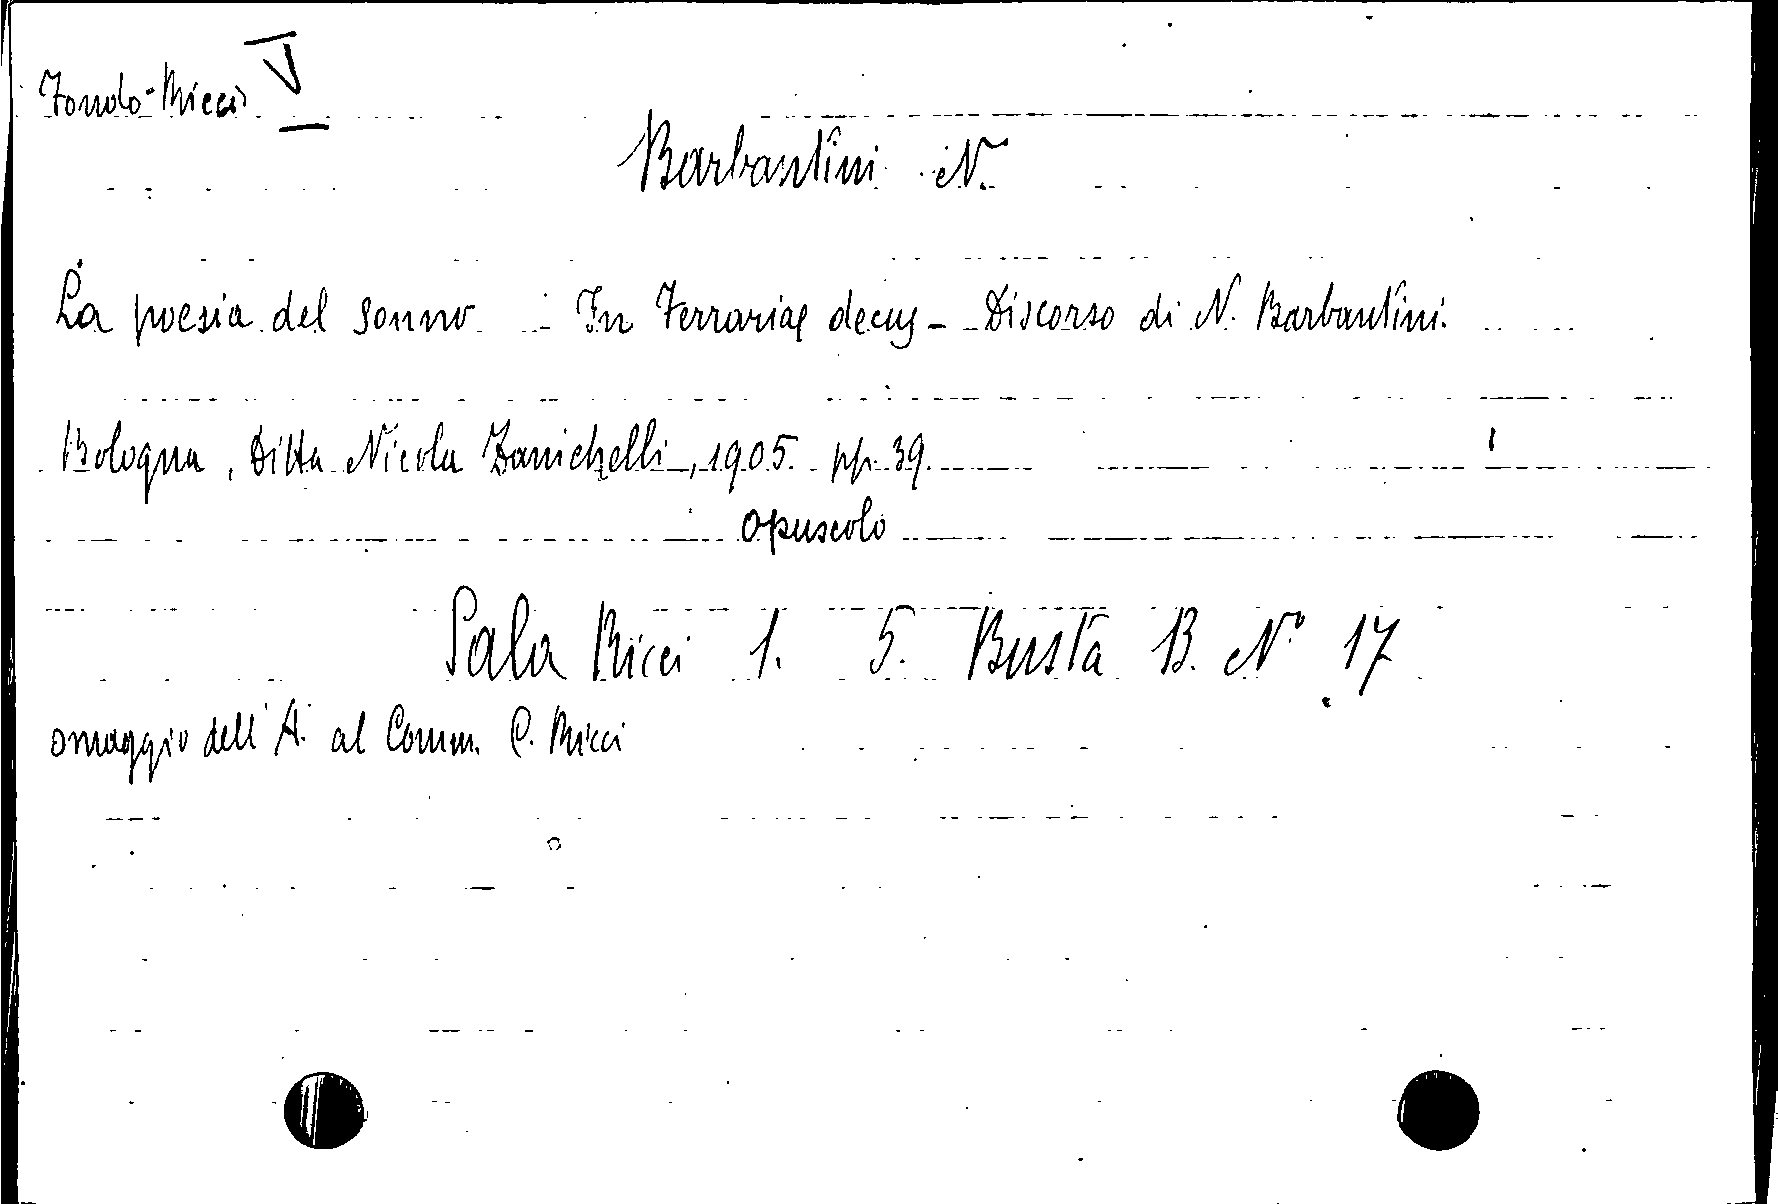 Fondo-Ricci V
Barbantini N.
La poesia del sonno - In Ferrariae decus - Discorso di N. Barbantini.
Bologna, Ditta Nicola Zanichelli, 1905. pp. 39.
opuscolo
Sala Ricci 1. 5. Busta B. N° 17
omaggio dell'A. al Comm. C. Ricci